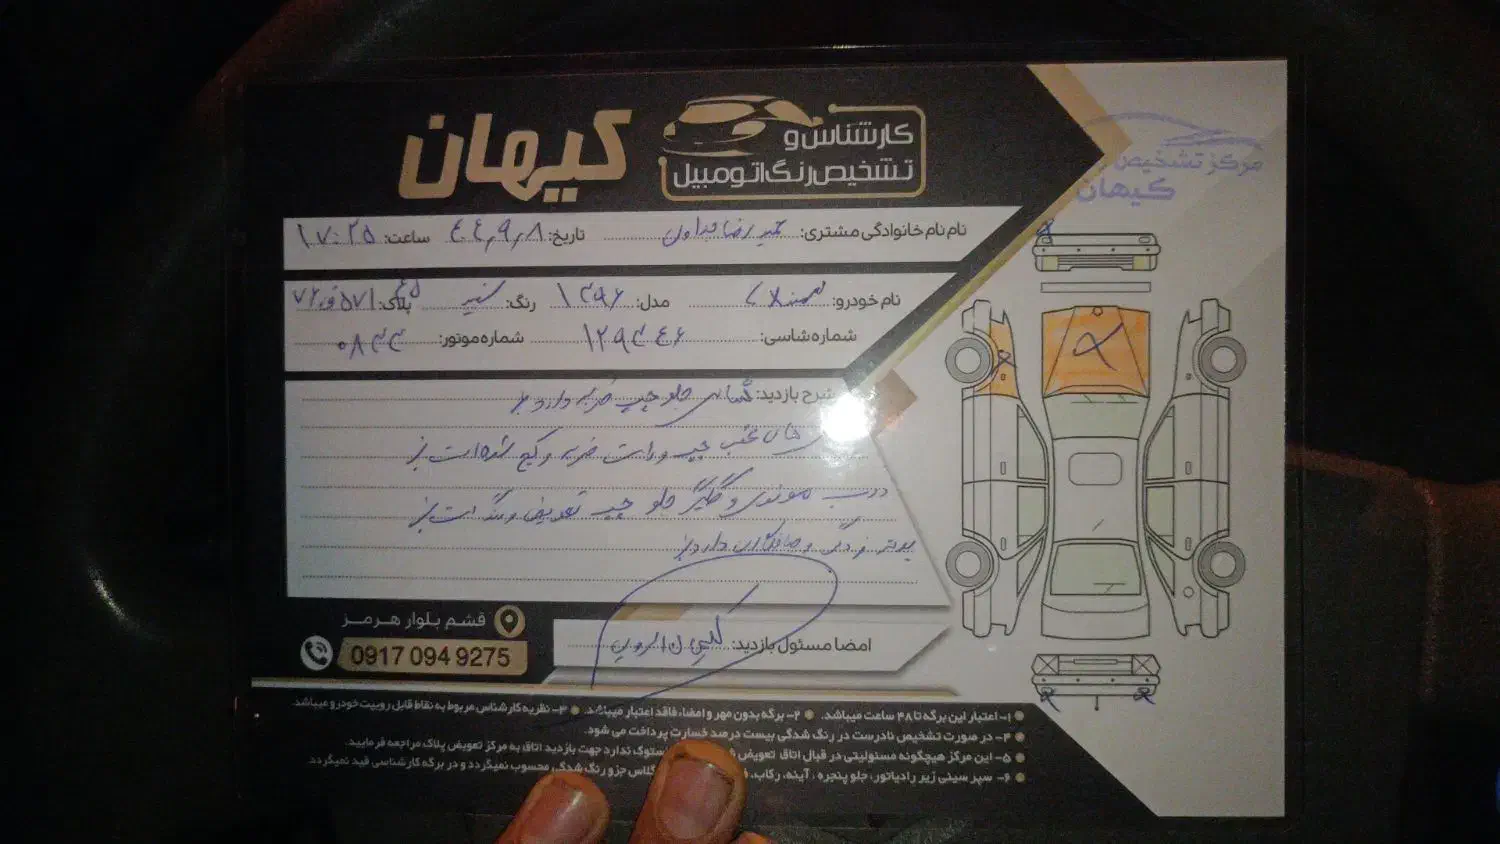 کارشناس و
تشخیص رنگ اتومبیل
کیهان
مرکز تشخیص
کیهان
نام نام خانوادگی مشتری: رضا تاریخ: ۴۴،۹،۸ ساعت: ۱۷:۲۵
نام خودرو: سمند LX مدل: ۱۳۹۶ رنگ: سفید پلاک:
شماره شاسی: ۱۲۹۳۴۴۶ شماره موتور:
شرح بازدید: جلو چپ ضربه دارد
عقب چپ و راست ضربه و کج شده است
درب موتور و گلگیر جلو چپ تعویض و رنگ است
و صافکاری دارد
امضا مسئول بازدید:
قشم بلوار هرمز
0917 094 9275
۱- اعتبار این برگه تا ۴۸ ساعت میباشد. ۲- برگه بدون مهر و امضا، فاقد اعتبار میباشد. ۳- نظریه کارشناس مربوط به نقاط قابل رویت خودرو میباشد.
۴- در صورت تشخیص نادرست در رنگ شدگی بیست درصد خسارت پرداخت می شود.
۵- این مرکز هیچگونه مسئولیتی در قبال اتاق تعویض استوک ندارد جهت بازدید اتاق به مرکز تعویض پلاک مراجعه فرمایید.
۶- سپر سینی زیر رادیاتور، جلو پنجره، آینه، رکاب، گلاس جزو رنگ شدگی محسوب نمیگردد و در برگه کارشناسی قید نمیگردد